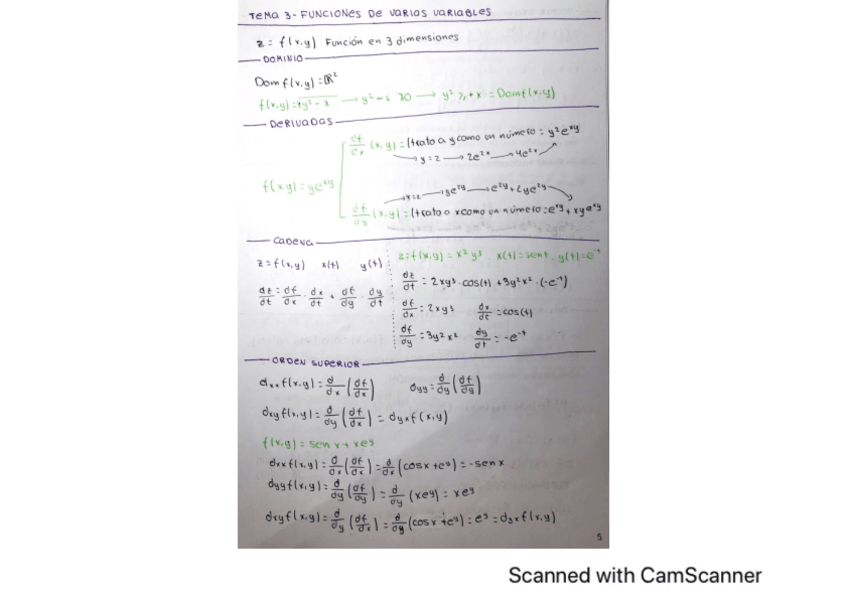 TEMA 3 - FUNCIONES DE VARIAS VARIABLES
z = f(x,y) Función en 3 dimensiones
DOMINIO
Dom f(x,y) = ℝ²
f(x,y) = +√y²-x → y²-x ≥0 → y² ≥ +x = Dom f(x,y)
DERIVADAS
df/dx (x,y) = (trato a y como un número = y²e^xy
→ y=2 → 2e^2x → 4e^2x
f(x,y) = ye^xy
x=2 → ye^2y → e^2y + 2ye^2y
df/dy (x,y) = (trato a x como un número = e^xy + xye^xy
CADENA
z = f(x,y) x(t) y(t)
dz/dt = df/dx · dx/dt + df/dy · dy/dt
z = f(x,y) = x²y³ . x(t) = sent . y(t) = e^-t
dz/dt = 2xy³ · cos(t) + 3y²x² · (-e^-t)
df/dx = 2xy³ dx/dt = cos(t)
df/dy = 3y²x² dy/dt = -e^-t
ORDEN SUPERIOR
dxx f(x,y) = d/dx (df/dx) dyy = d/dy (df/dy)
dxy f(x,y) = d/dy (df/dx) = dyx f(x,y)
f(x,y) = sen x + xe^y
dxx f(x,y) = d/dx (df/dx) = d/dx (cosx + e^y) = -sen x
dyy f(x,y) = d/dy (df/dy) = d/dy (xe^y) = xe^y
dxy f(x,y) = d/dy (df/dx) = d/dy (cosx + e^y) = e^y = dyx f(x,y)
5
Scanned with CamScanner